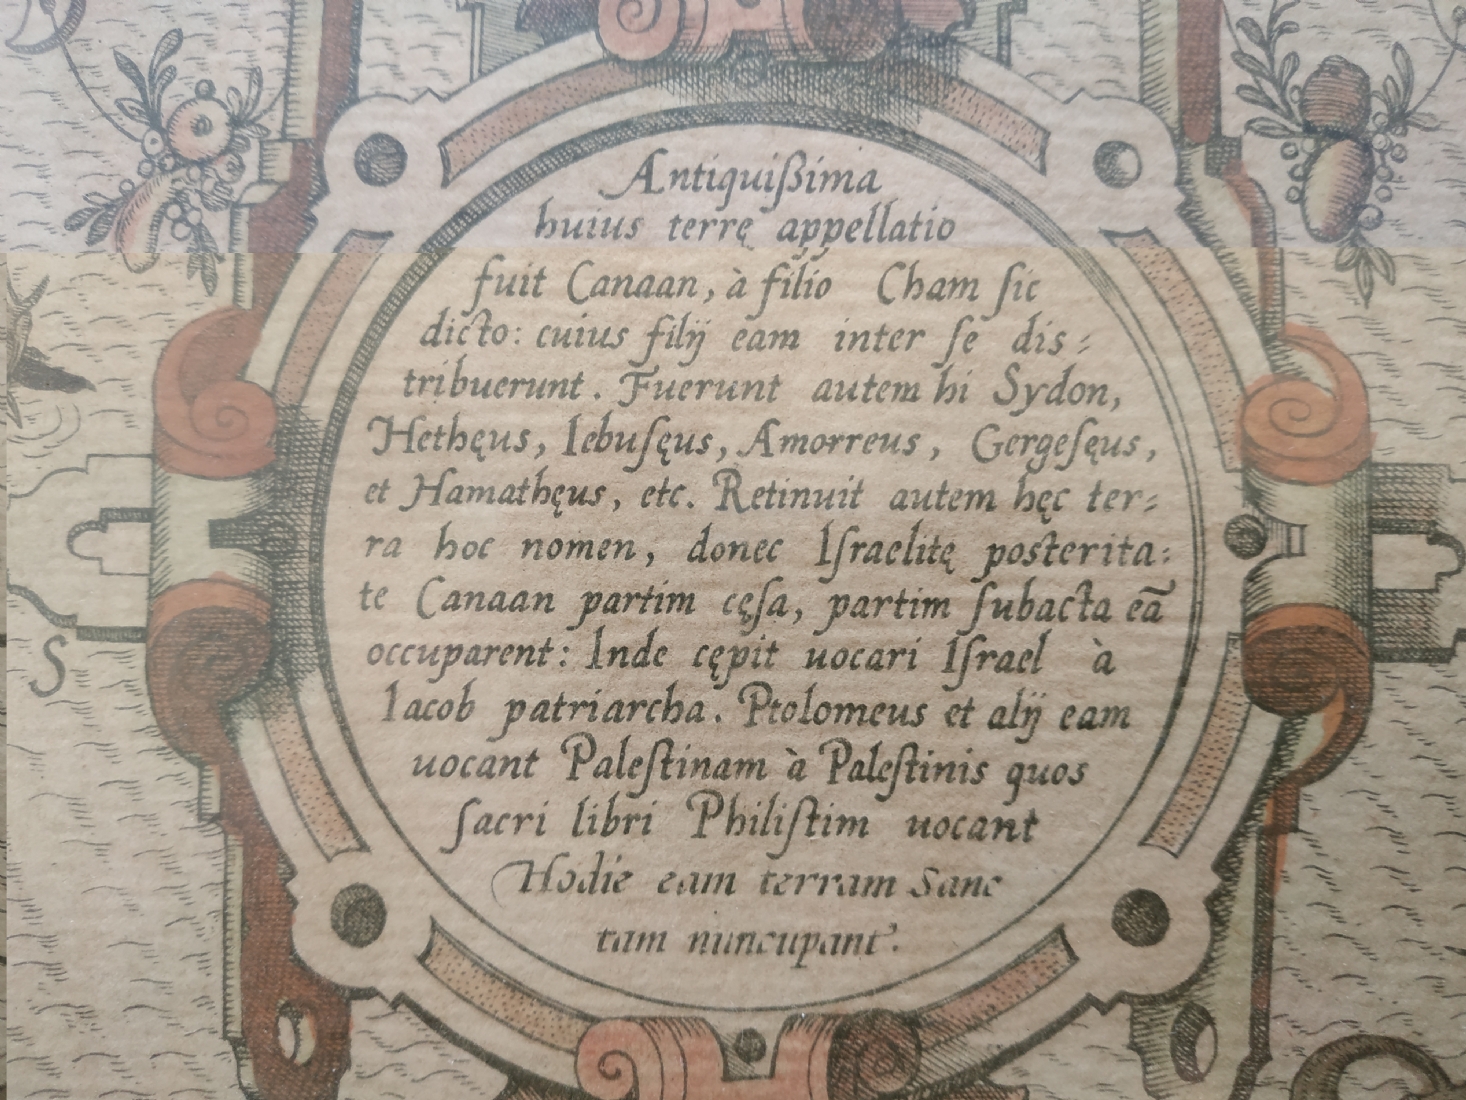 Antiquißima
huius terrę appellatio
fuit Canaan, à filio Cham ſic
dicto: cuius filij eam inter ſe dis⸗
tribuerunt. Fuerunt autem hi Sydon,
Hethęus, Iebuſęus, Amorreus, Gergeſęus,
et Hamathęus, etc. Retinuit autem hęc ter⸗
ra hoc nomen, donec Iſraelitę poſterita:
te Canaan partim cęſa, partim ſubacta eã
occuparent: Inde cępit uocari Iſrael à
Iacob patriarcha. Ptolomeus et alij eam
uocant Paleſtinam à Paleſtinis quos
ſacri libri Philiſtim uocant
Hodie eam terram Sanc
tam nuncupant.
S